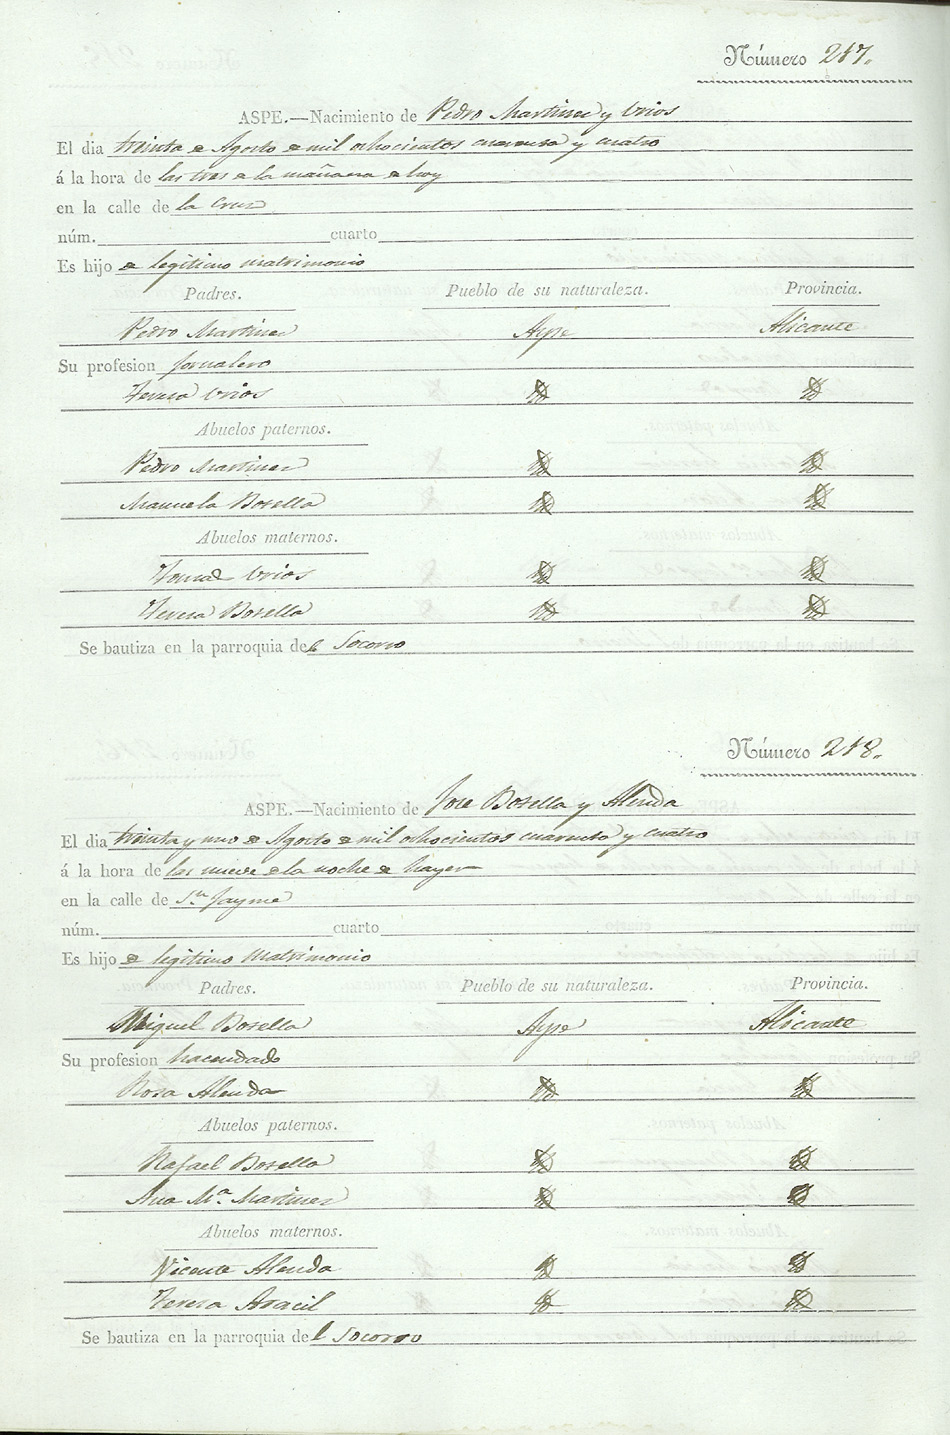 Número 217.
ASPE.—Nacimiento de Pedro Martinez y Urios
El dia treinta de Agosto de mil ochocientos cuarenta y cuatro
á la hora de las tres de la mañana de hoy
en la calle de la Cruz
núm. cuarto
Es hijo de legitimo matrimonio
Padres. Pueblo de su naturaleza. Provincia.
Pedro Martinez Aspe Alicante
Su profesion Jornalero
Teresa Urios
Abuelos paternos.
Pedro Martinez
Manuela Botella
Abuelos maternos.
Tomas Urios
Teresa Botella
Se bautiza en la parroquia del Socorro
Número 218.
ASPE.—Nacimiento de Jose Botella y Alenda
El dia treinta y uno de Agosto de mil ochocientos cuarenta y cuatro
á la hora de las nueve de la noche de hayer
en la calle de Sn Jayme
núm. cuarto
Es hijo de legitimo Matrimonio
Padres. Pueblo de su naturaleza. Provincia.
Miguel Botella Aspe Alicante
Su profesion hacendado
Rosa Alenda
Abuelos paternos.
Rafael Botella
Ana Mª Martinez
Abuelos maternos.
Vicente Alenda
Teresa Aracil
Se bautiza en la parroquia del Socorro